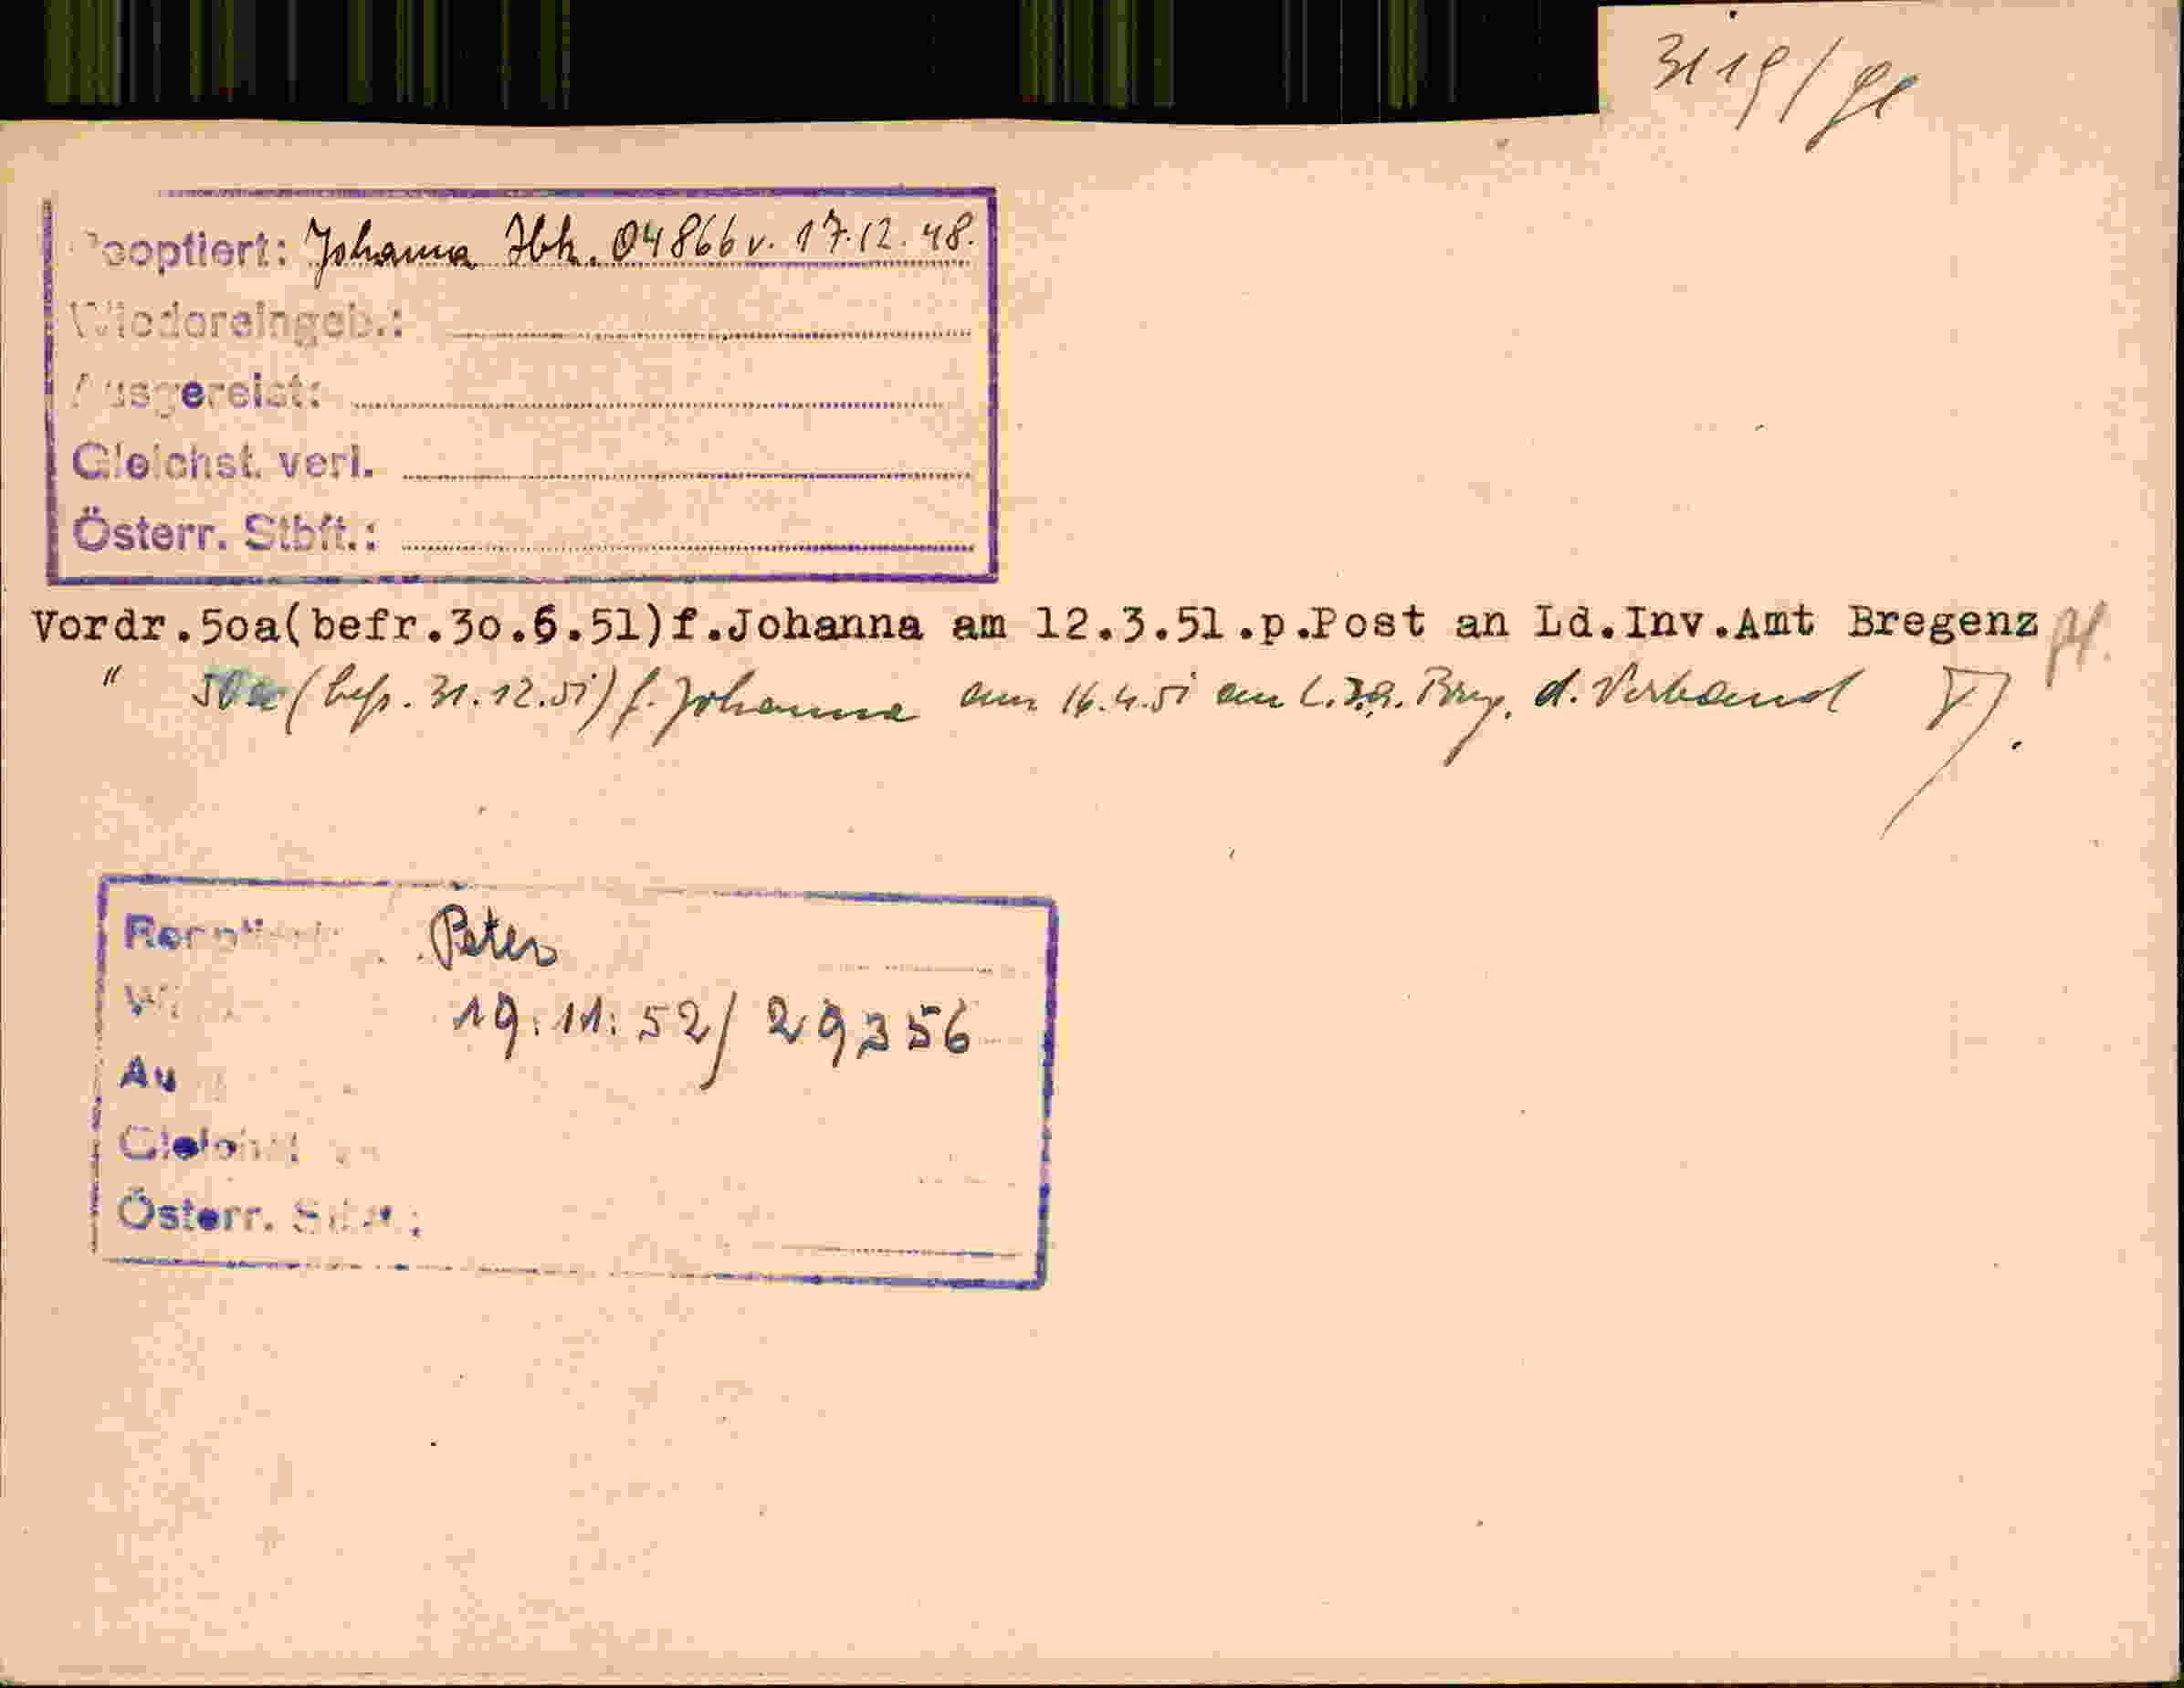 3119/ge
Reoptiert: Johanna Ibk. 04866 v. 17.12.48.
Wiedereingeb.:
Ausgereist:
Gleichst. verl.
Österr. Stbft.:
Vordr.50a(befr.30.6.51)f.Johanna am 12.3.51.p.Post an Ld.Inv.Amt Bregenz
" 50a (befr. 31.12.51) f. Johanna am 16.4.51 an L.I.A. Breg. d. Verband
Reoptiert Peter
19.11.52/29356
Au
Gleichst
Österr.